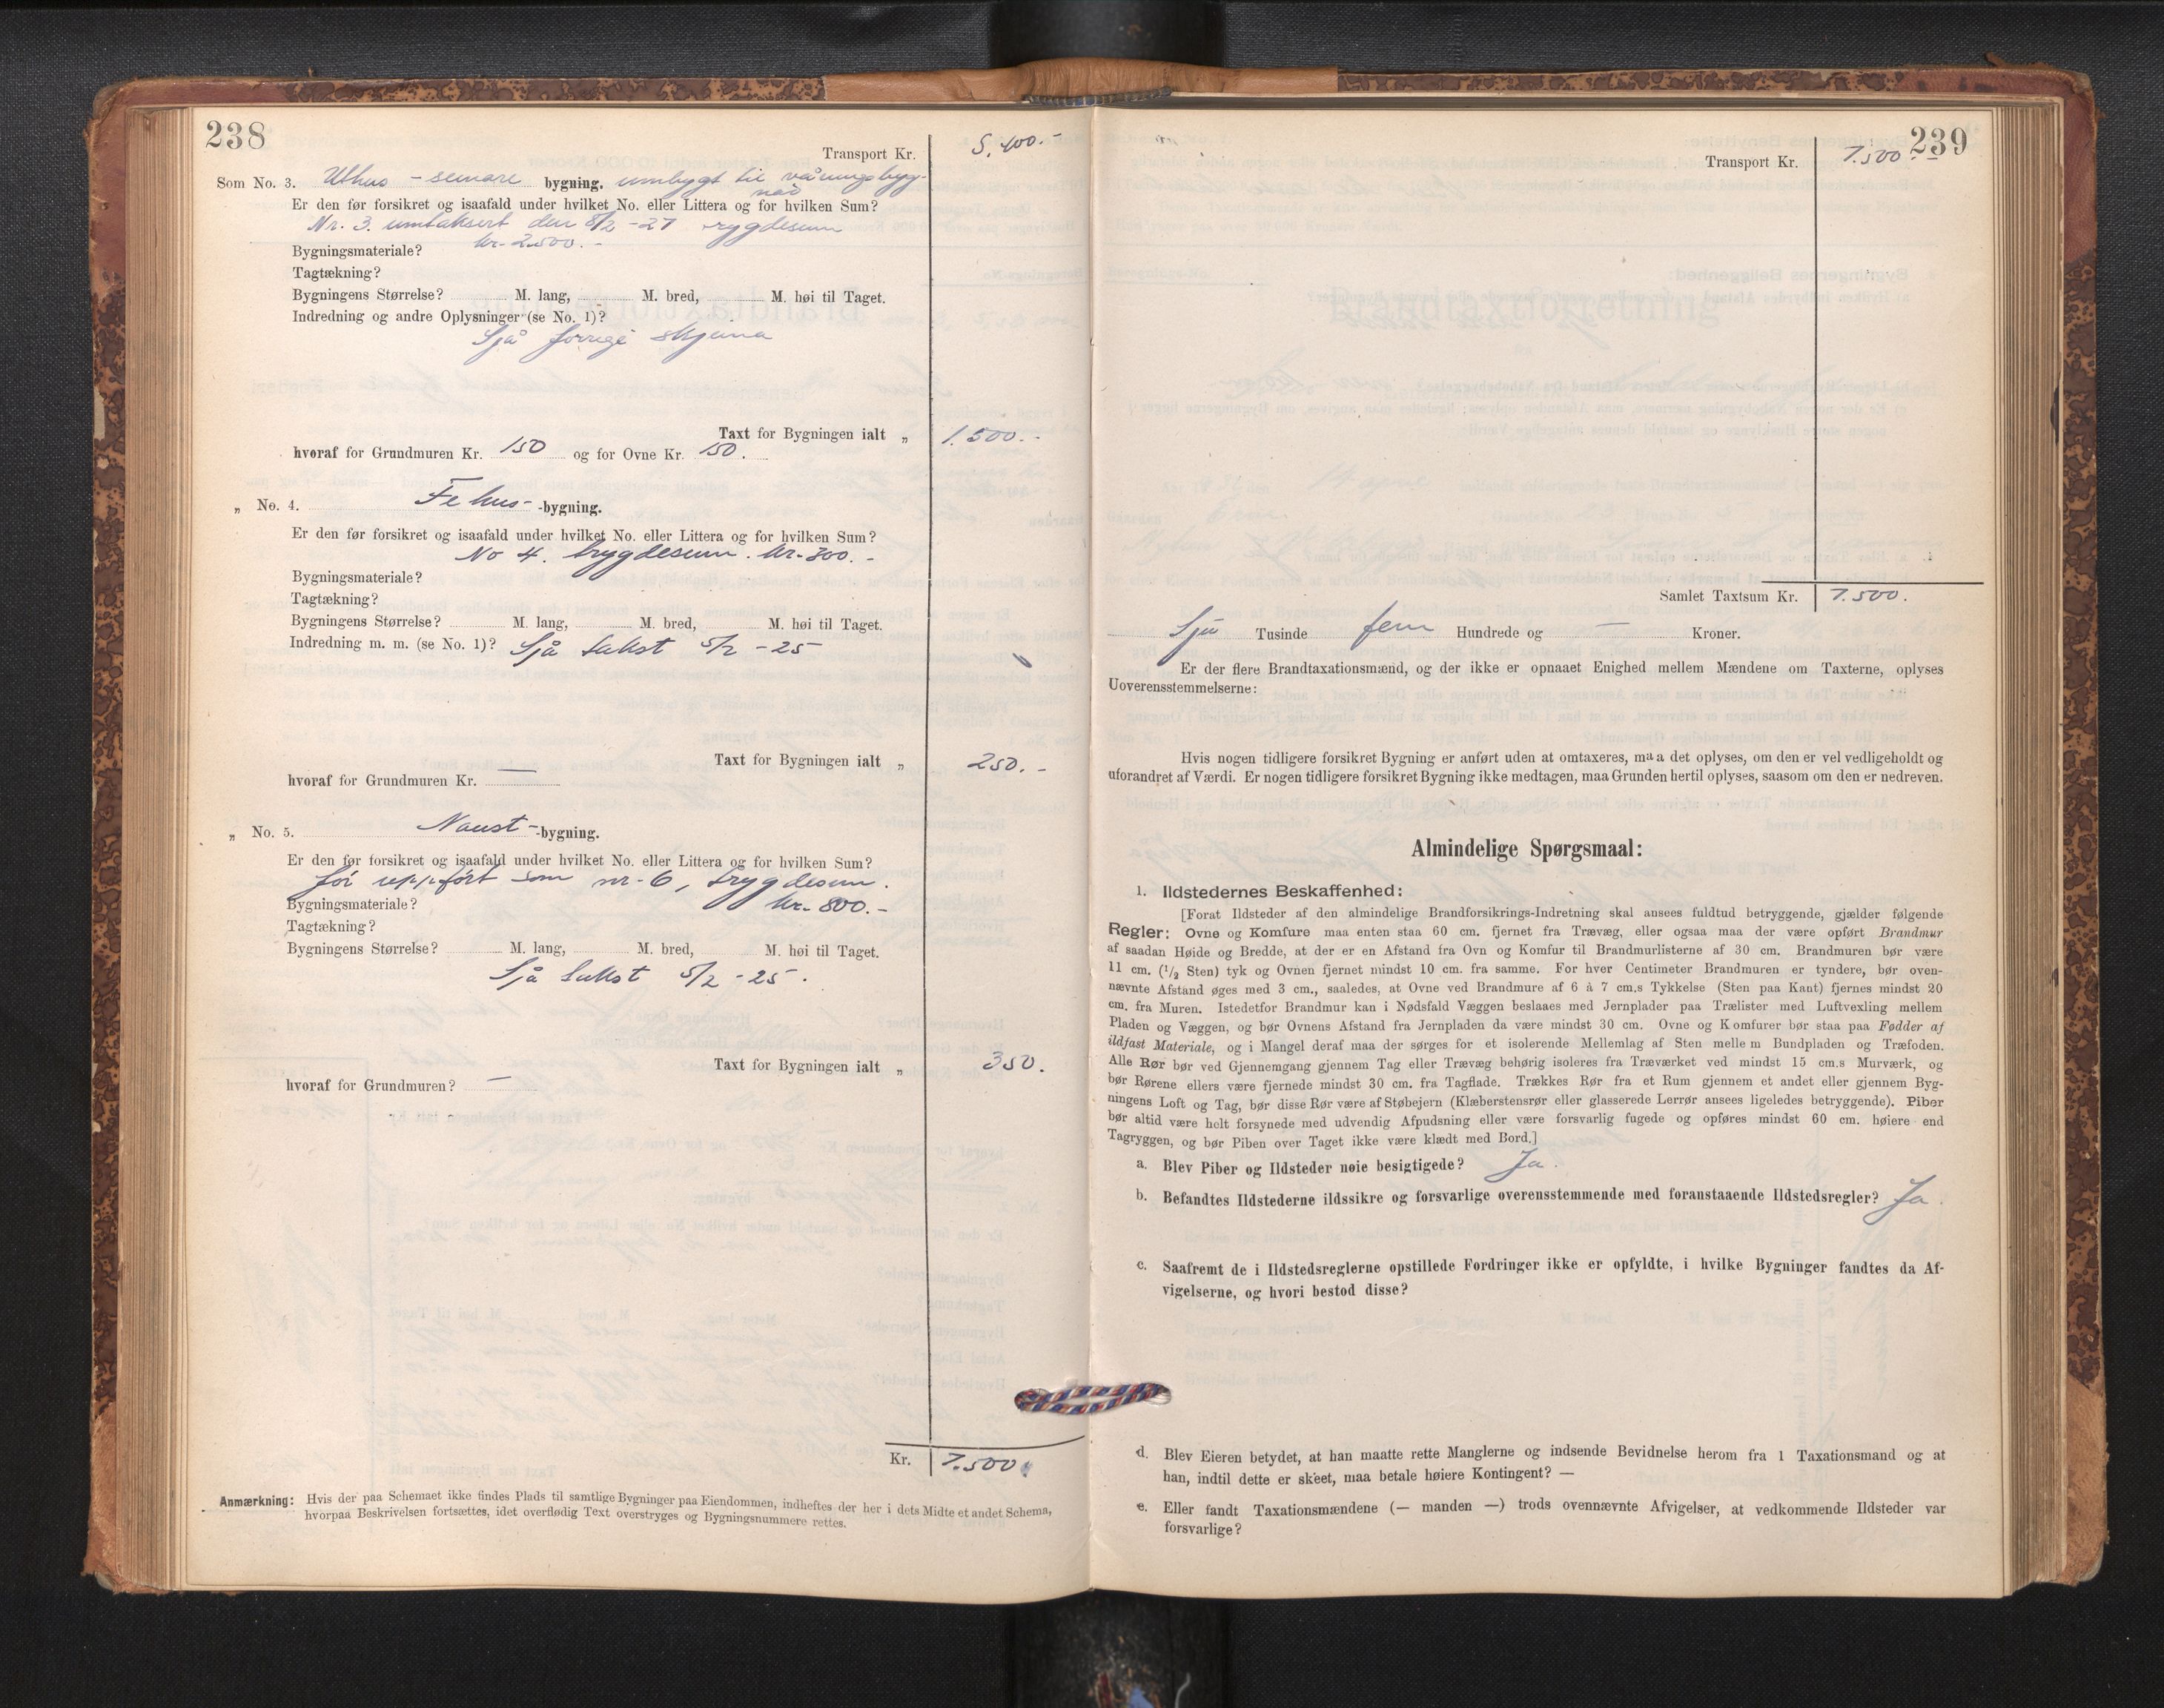 238
Transport Kr. 5.400.-
Som No. 3. Uthus - senare bygning. umbygt til våningsbyg-
nad
Er den før forsikret og isaafald under hvilket No. eller Littera og for hvilken Sum?
Nr. 3. umtaksert den 5/2 -27 trygdesum
Kr. 2.500.-
Bygningsmateriale?
Tagtækning?
Bygningens Størrelse? M. lang, M. bred, M. høi til Taget.
Indredning og andre Oplysninger (se No. 1)?
Sjå forrige skjema
Taxt for Bygningen ialt „ 1.500.-
hvoraf for Grundmuren Kr. 150 og for Ovne Kr. 150.
„ No. 4. Fehus- -bygning.
Er den før forsikret og isaafald under hvilket No. eller Littera og for hvilken Sum?
No 4. trygdesum. kr. 300.-
Bygningsmateriale?
Tagtækning?
Bygningens Størrelse? M. lang, M. bred, M. høi til Taget.
Indredning m. m. (se No. 1)? Sjå takst 5/2 -25
Taxt for Bygningen ialt „ 250.-
hvoraf for Grundmuren Kr. —
„ No. 5. Naust- -bygning.
Er den før forsikret og isaafald under hvilket No. eller Littera og for hvilken Sum?
før uppført som nr. 6, trygdesum.
Bygningsmateriale? kr. 800.-
Tagtækning?
Bygningens Størrelse? M. lang, M. bred, M. høi til Taget.
Sjå takst 5/2 -25.
Taxt for Bygningen ialt „ 350.
hvoraf for Grundmuren? —
Kr. 7.500
Anmærkning: Hvis der paa Schemaet ikke findes Plads til samtlige Bygninger paa Eiendommen, indheftes der her i dets Midte et andet Schema,
hvorpaa Beskrivelsen fortsættes, idet overflødig Text overstryges og Bygningsnummere rettes.
239
Transport Kr. 7.500.-
Samlet Taxtsum Kr. 7.500.
Sju Tusinde fem Hundrede og — Kroner.
Er der flere Brandtaxationsmænd, og der ikke er opnaaet Enighed mellem Mændene om Taxterne, oplyses
Uoverensstemmelserne:
Hvis nogen tidligere forsikret Bygning er anført uden at omtaxeres, maa det oplyses, om den er vel vedligeholdt og
uforandret af Værdi. Er nogen tidligere forsikret Bygning ikke medtagen, maa Grunden hertil oplyses, saasom om den er nedreven.
Almindelige Spørgsmaal:
1. Ildstedernes Beskaffenhed:
[Forat Ildsteder af den almindelige Brandforsikrings-Indretning skal ansees fuldtud betryggende, gjælder følgende
Regler: Ovne og Komfure maa enten staa 60 cm. fjernet fra Trævæg, eller ogsaa maa der være opført Brandmur
af saadan Høide og Bredde, at der er en Afstand fra Ovn og Komfur til Brandmurlisterne af 30 cm. Brandmuren bør være
11 cm. (1/2 Sten) tyk og Ovnen fjernet mindst 10 cm. fra samme. For hver Centimeter Brandmuren er tyndere, bør oven-
nævnte Afstand øges med 3 cm., saaledes, at Ovne ved Brandmure af 6 à 7 cm.s Tykkelse (Sten paa Kant) fjernes mindst 20
cm. fra Muren. Istedetfor Brandmur kan i Nødsfald Væggen beslaaes med Jernplader paa Trælister med Luftvexling mellem
Pladen og Væggen, og bør Ovnens Afstand fra Jernpladen da være mindst 30 cm. Ovne og Komfurer bør staa paa Fødder af
ildfast Materiale, og i Mangel deraf maa der sørges for et isolerende Mellemlag af Sten mellem Bundpladen og Træfoden.
Alle Rør bør ved Gjennemgang gjennem Tag eller Trævæg behørig isoleres fra Træværket ved mindst 15 cm.s Murværk, og
bør Rørene ellers være fjernede mindst 30 cm. fra Tagflade. Trækkes Rør fra et Rum gjennem et andet eller gjennem Byg-
ningens Loft og Tag, bør disse Rør være af Støbejern (Klæberstensrør eller glasserede Lerrør ansees ligeledes betryggende). Piber
bør altid være helt forsynede med udvendig Afpudsning eller være forsvarlig fugede og opføres mindst 60 cm. høiere end
Tagryggen, og bør Piben over Taget ikke være klædt med Bord.]
a. Blev Piber og Ildsteder nøie besigtigede? Ja.
b. Befandtes Ildstederne ildssikre og forsvarlige overensstemmende med foranstaaende Ildstedsregler? Ja.
c. Saafremt de i Ildstedsreglerne opstillede Fordringer ikke er opfyldte, i hvilke Bygninger fandtes da Af-
vigelserne, og hvori bestod disse?
d. Blev Eieren betydet, at han maatte rette Manglerne og indsende Bevidnelse herom fra 1 Taxationsmand og at
han, indtil dette er skeet, maa betale høiere Kontingent? —
e. Eller fandt Taxationsmændene (— manden —) trods ovennævnte Afvigelser, at vedkommende Ildsteder var
forsvarlige?